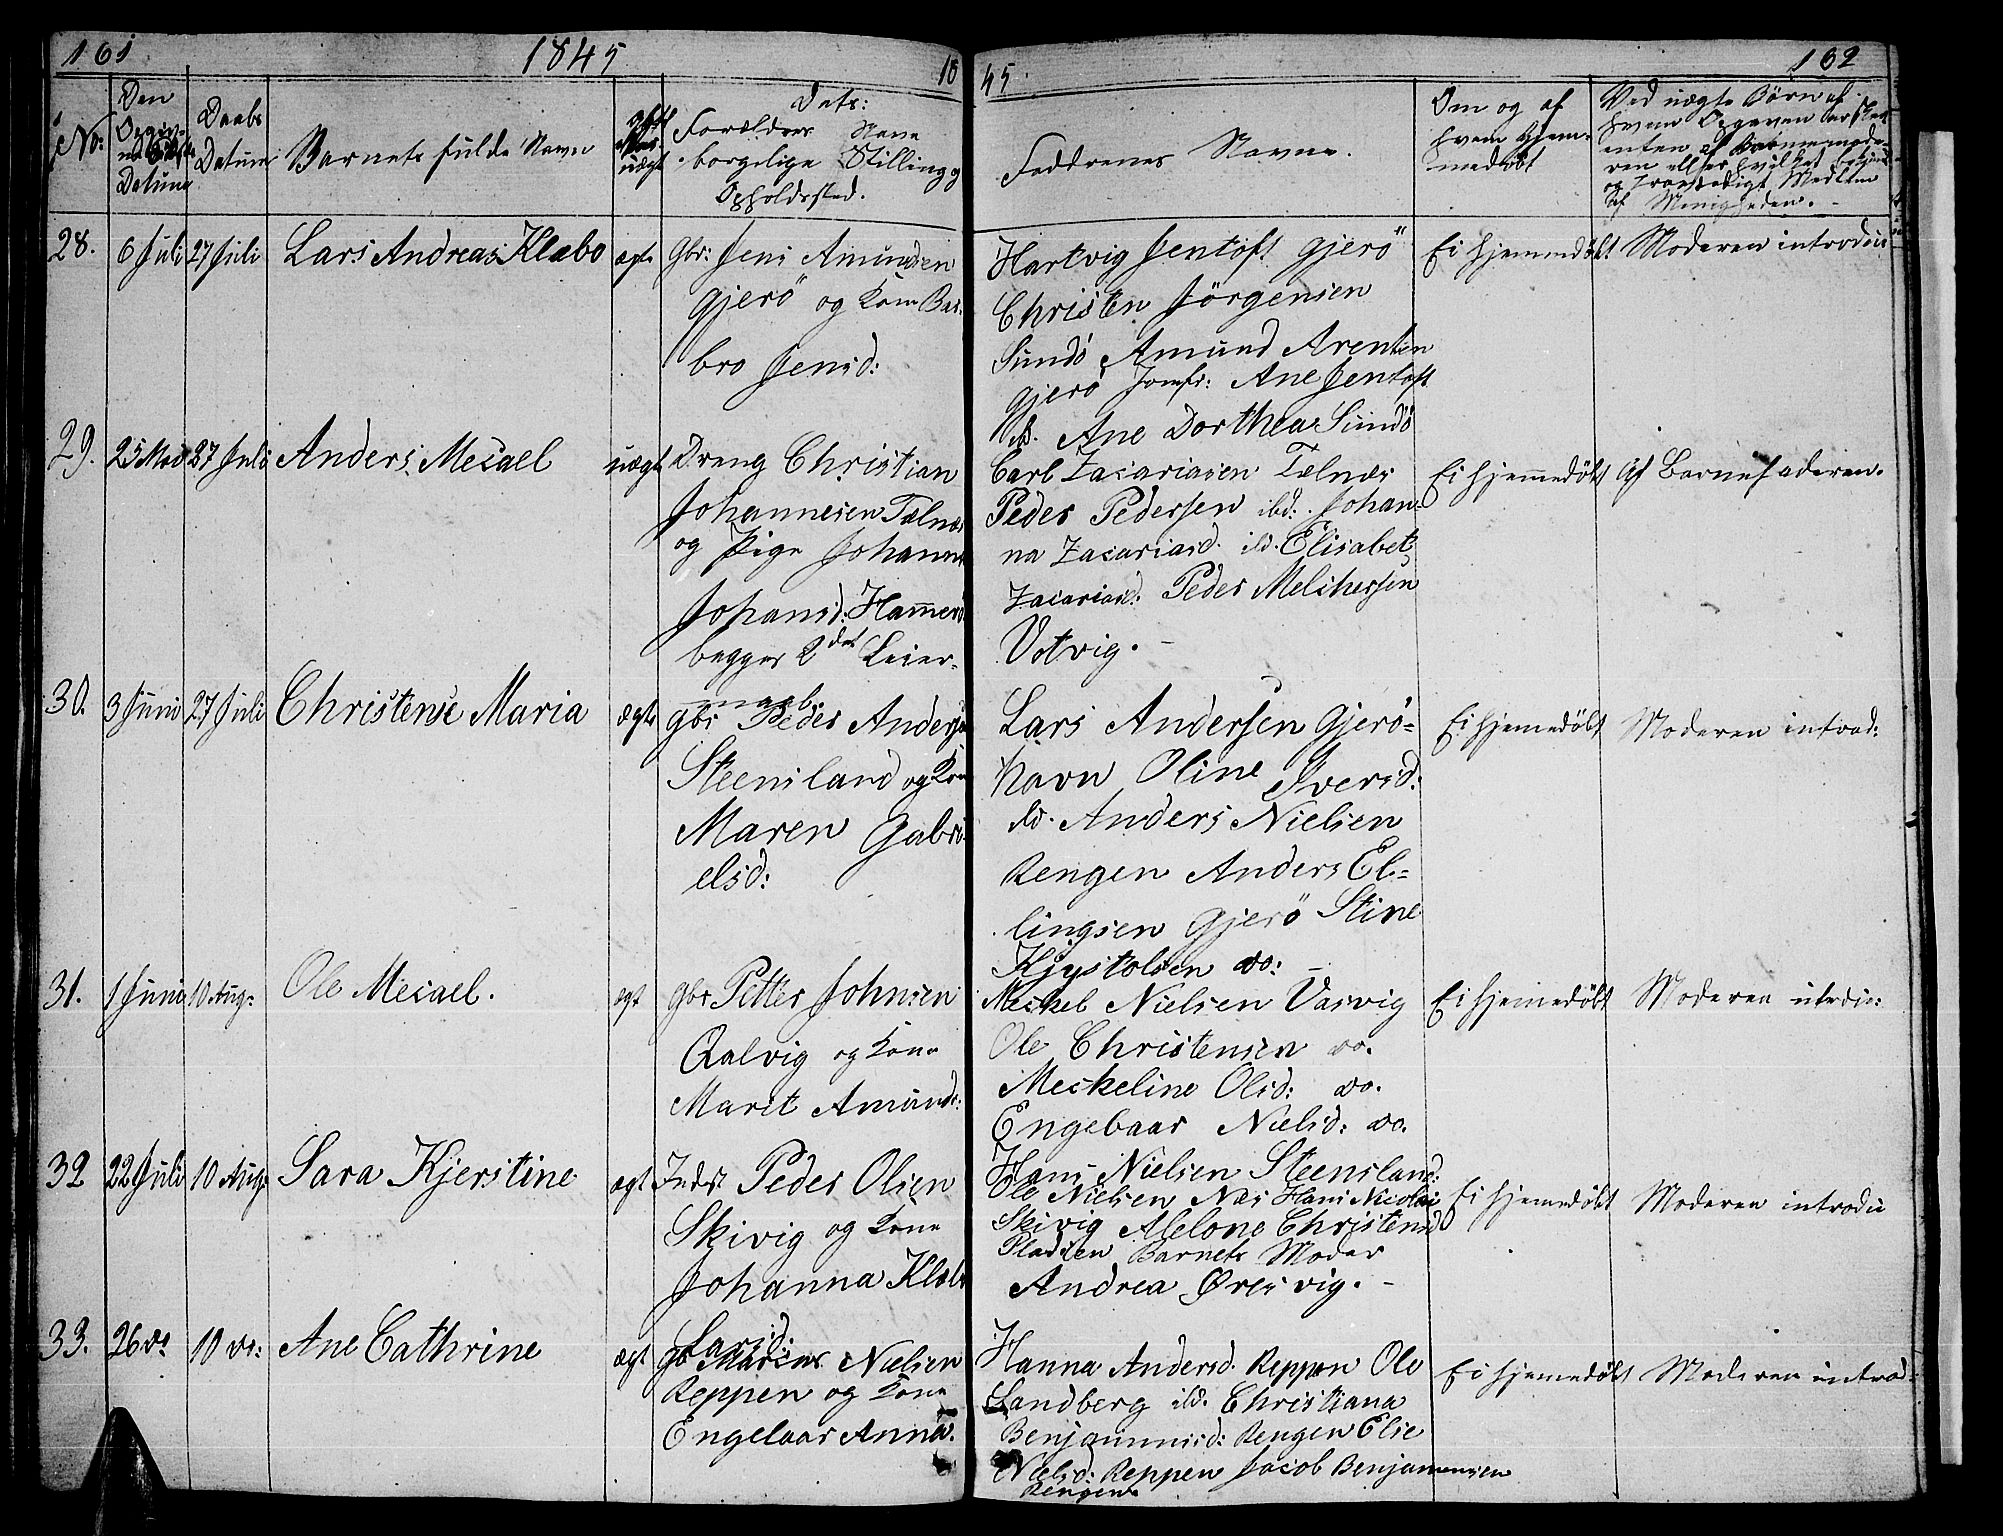 161 1845 18
45. 162
No: Den Daabs Barnets fulde Navn ægt uægt Dets:
Datum Datum Forældres Navn
borgelige Stilling og
Opholdssted.
Faddrenes Navne.
Om og af
hvem hjem-
medøbt
Ved uægte Børn af
hvem Opgaven
enten af Barnemode-
ren eller hvilket
og troværdigt Medlem
af Menigheden.
28. 6 Juli 27 Juli Lars Andreas Klæbo ægte Gbr: Jens Amundsen
Gjerö og Kone Bar-
bro Jensd:
Hartvig Jentoft Gjerö
Christen Jörgensen
Sundö Amund Arentsen
Gjerö Jomfr: Ane Jentoft
ibd. Ane Dorthea Sundö
Ei hjemmedøbt Moderen introduc
29. 25 Mai 27 Juli Anders Mesael uægt Dreng Christian
Johannesen Tælnæs
og Pige Johanna
Johansd: Hamerö
begges 2det Leier-
maal.
Carl Zacariasen Tælnæs
Peder Pedersen ibd: Johan-
na Zacariasd. ibd. Elisabet
Zacariasd: Peder Melchersen
Votvig.
Ei hjemmedøbt Af Barnefaderen.
30. 3 Juni 27 Juli Christense Maria ægte Gbr Peder Andersen
Steensland og Kone
Maren Gabri-
elsd:
Lars Andersen Gjerö-
havn Oline Iversd:
ibd. Anders Nielsen
Rengen Anders El-
lingsen Gjerö Stine
Kjystolsen do:
Ei hjemedøbt Moderen introd:
31. 1 Juni 10 Aug: Ole Mesael. ægt Gbr Petter Johnsen
Aalvig og Kone
Marit Amunds:
Meskel Nielsen Vasvig
Ole Christensen do.
Meskeline Olsd: do.
Engebaar Nielsd: do.
Ei hjemedøbt Moderen introdu:
32 22 Juli 10 Aug: Sara Kjerstine ægt Inds: Peder Olsen
Skivig og Kone
Johanna Klæbo
Larsd:
Hans Nielsen Steensland:
Ole Nielsen Næs Hans Nicolai
Skivig Alelone Christensd
Pladsen Barnets Moder
Andrea Øresvig.
Ei hjemedøbt Moderen introdu
33. 26 do 10 do: Ane Cathrine ægt Gb Marius Nielsen
Reppen og Kone
Engelaar Anna.
Hanna Andersd. Reppen Ole
Sandberg ibd. Christiana
Benjaminsd: Rengen Elie
Nielsd: Reppen Jacob Benjamensen
Rengen
Ei hjemedøbt Moderen introd: